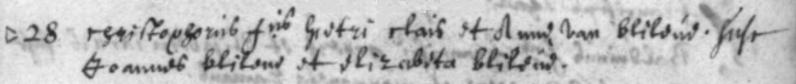 28 christophorus f:us petri clais et Anne van blileue. susc
Joannes blileue et elizabeta blileue.